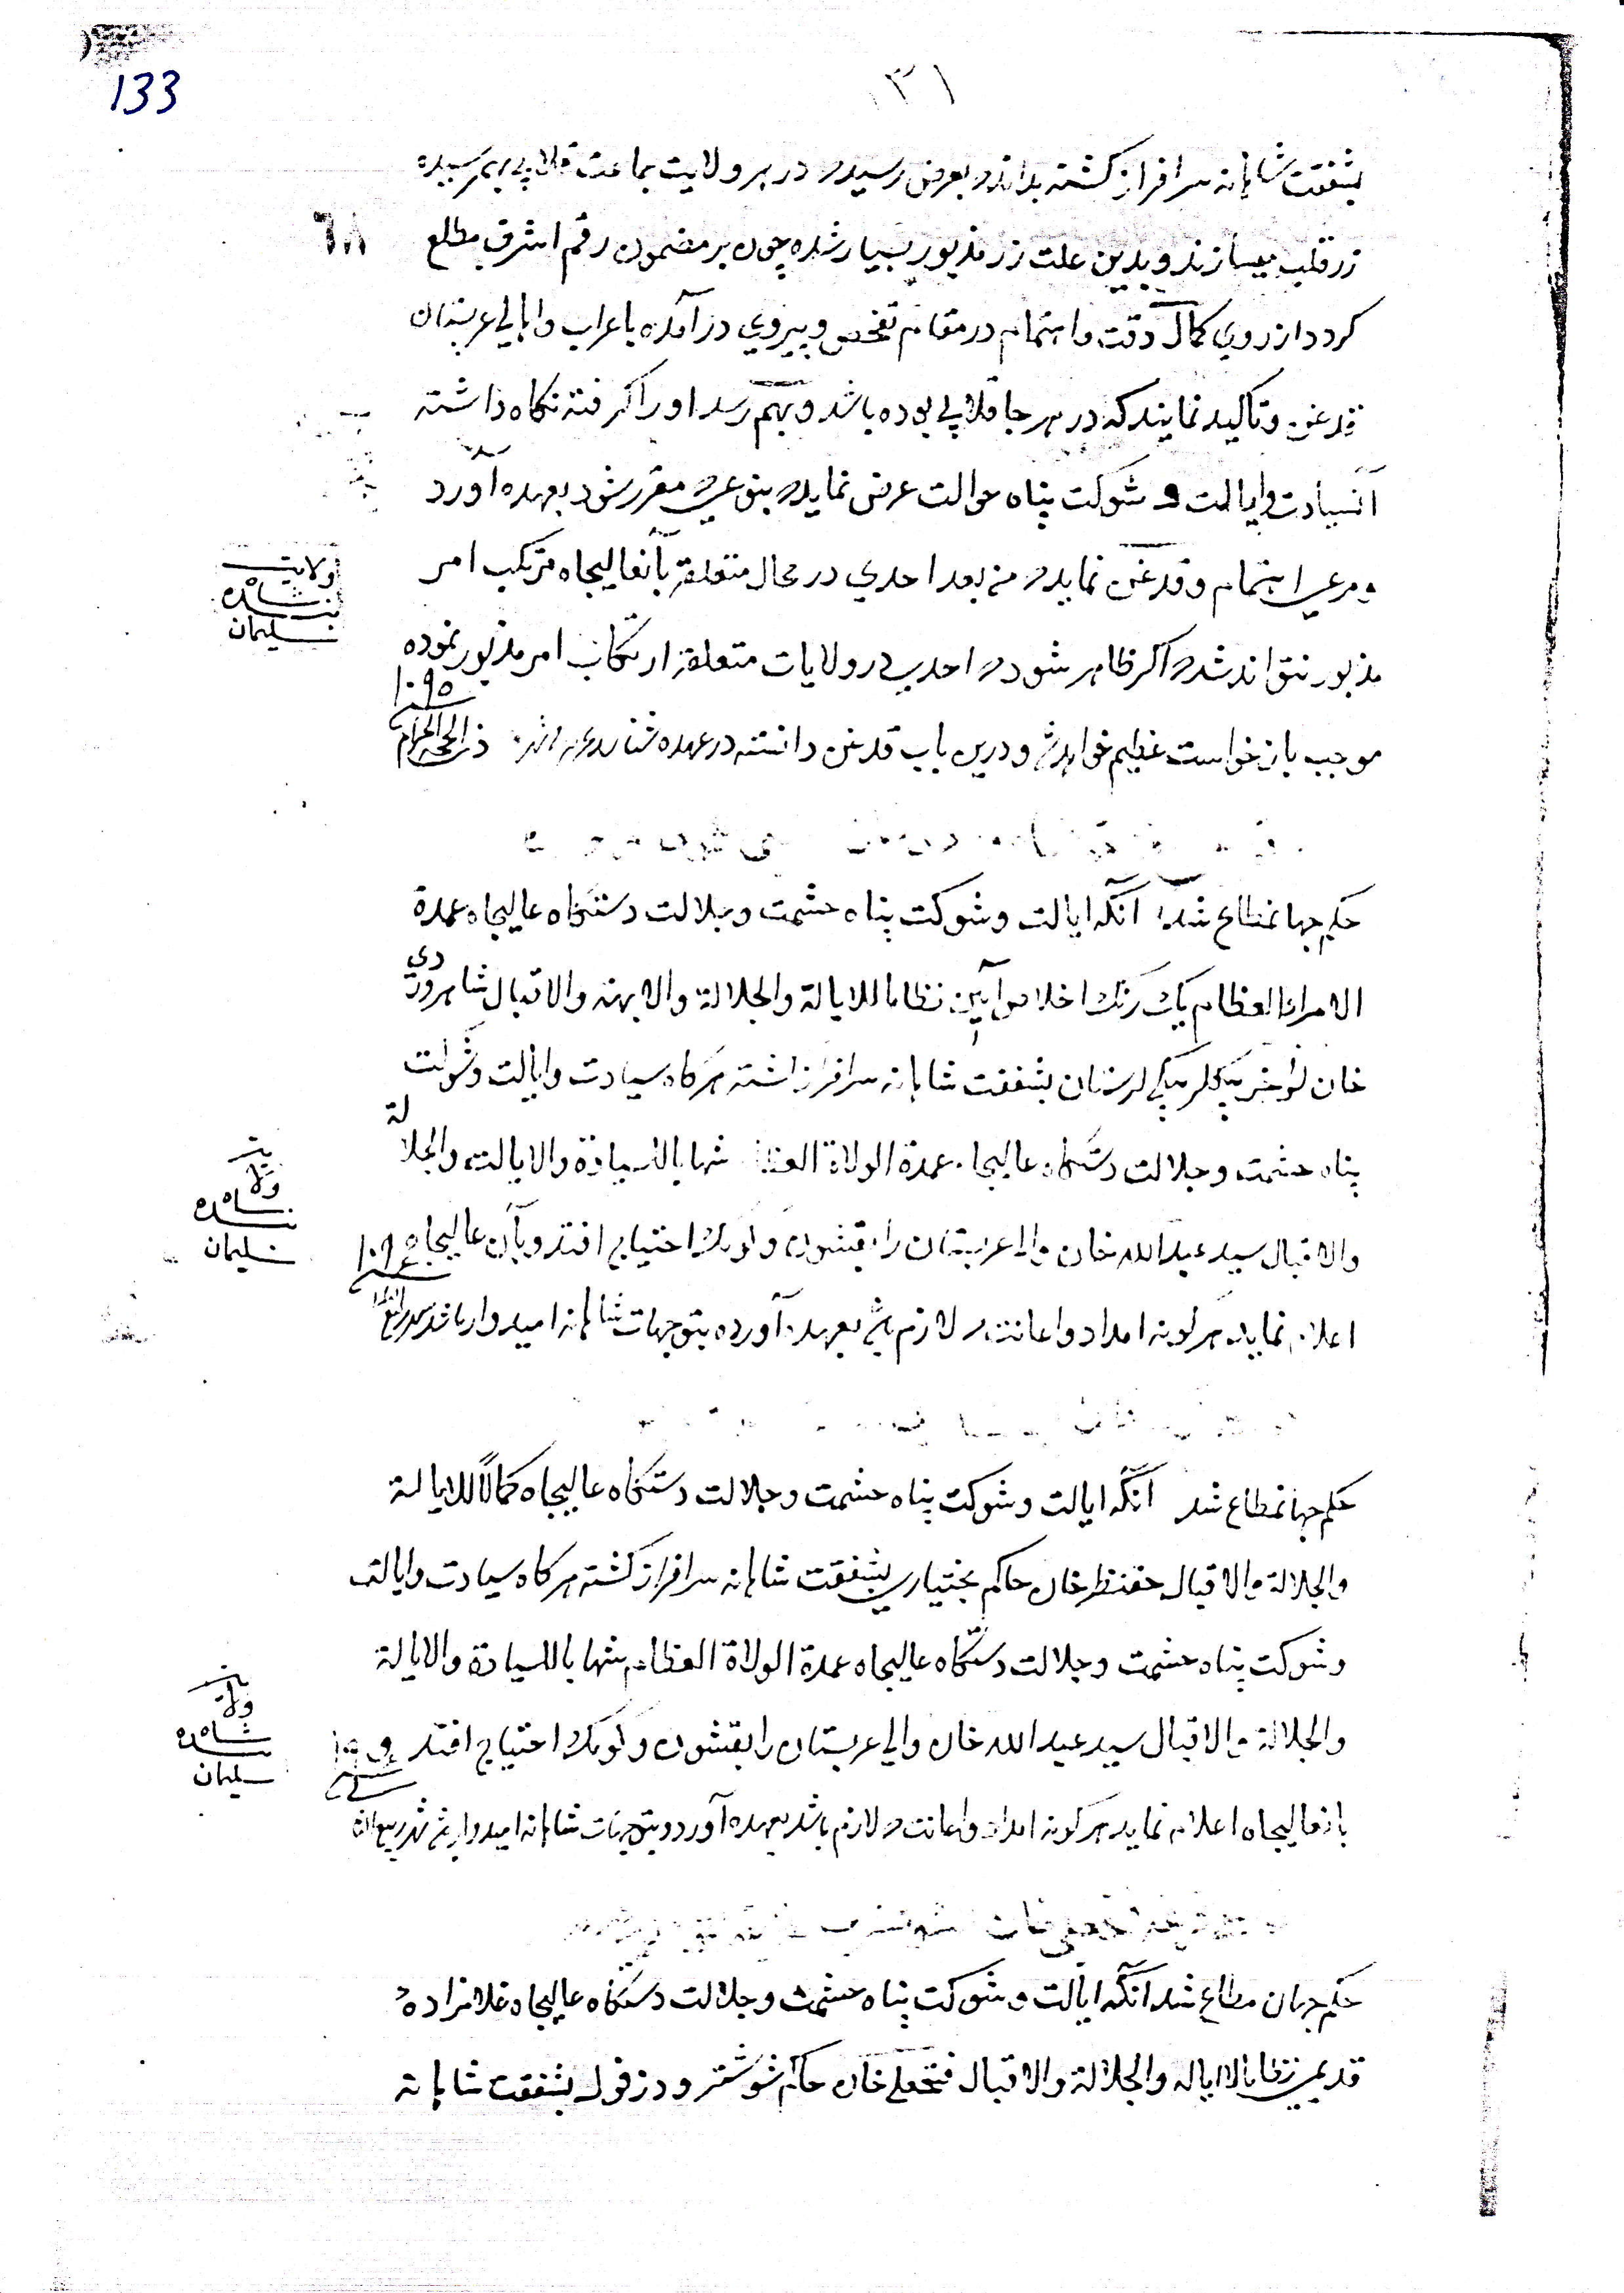 133
۳۱
بشفقت شاهانه سرافراز کشته بداند که بعرض رسید که در هر ولایت جماعت قلابی بهمرسیده
زر قلب میسازند و بدین علت زر مذبور بسیار شده چون بر مضمون رقم اشرف مطلع
٦٨
کردد از روی کمال دقت و اهتمام در مقام تفحص و پیروی درآمده باعراب و اهالی عربستان
قدغن و تاکید نمایند که در هر جا قلابی بوده باشد و بهم رسد او را کرفته نکاه داشته
آنسیادت و ایالت و شوکت پناه حوالت عرض نماید که بنوعی که مقرر شود بعهده آورد
و مرعی اهتمام و قدغن نماید که من بعد احدی در محال متعلقه بآنعالیجاه مرتکب امر
مذبور نتواند شد که اکر ظاهر شود که احدی در ولایات متعلقه ارتکاب امر مذبور نموده
موجب بازخواست عظیم خواهد شد و درین باب قدغن دانسته در عهده شناسد ذی الحجه الحرام
۱۰۹۵
ولایت
شاه
بنده
سلیمان
حکم جهانمطاع شد آنکه ایالت و شوکت پناه حشمت و جلالت دستکاه عالیجاه عمدة
الامراء العظام یک رنک اخلاص آیین نظاما للایالة والجلالة والابهة والاقبال شاهوردی
خان بیکلربیکی لرستان بشفقت شاهانه سرافراز کشته هرکاه سیادت و ایالت و شوکت
پناه حشمت و جلالت دستکاه عالیجاه عمدة الولاة العظام شهابا للسیادة والایالت والجلالة
والاقبال سید عبدالله خان والی عربستان را بقشون و کومک احتیاج افتد و بآن عالیجاه
اعلام نماید هرکونه امداد و اعانت که لازم باشد بعهده آورده بتوجهات شاهانه امیدوار باشد
ولایت
شاه
بنده
سلیمان
حکم جهانمطاع شد آنکه ایالت و شوکت پناه حشمت و جلالت دستکاه عالیجاه کمالا للایالة
والجلالة والاقبال حاکم بختیاری بشفقت شاهانه سرافراز کشته هرکاه سیادت و ایالت
و شوکت پناه حشمت و جلالت دستکاه عالیجاه عمدة الولاة العظام شهابا للسیادة والایالة
والجلالة والاقبال سید عبدالله خان والی عربستان را بقشون و کومک احتیاج افتد و
بانعالیجاه اعلام نماید هرکونه امداد و اعانت که لازم باشد بعهده آورد و بتوجهات شاهانه امیدوار باشد شهر ربیع
ولایت
شاه
بنده
سلیمان
حکم جهان مطاع شد آنکه ایالت و شوکت پناه حشمت و جلالت دستکاه عالیجاه غلامزاده
قدیمی نظاما للایاله والجلالة والاقبال فتحعلی خان حاکم شوشتر و دزفول بشفقت شاهانه